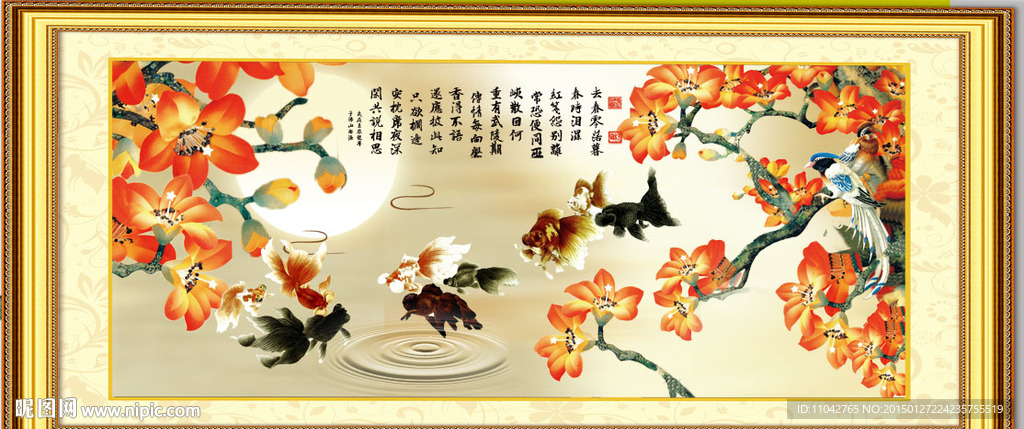 去春零落暮
春時泪湿
紅箋怨别離
常恐便同亞
峽散因何
重有武陵期
傳情每向馨
香得不語
還應彼此知
只欲欄邊
安枕席夜深
閑共説相思
昵图网 www.nipic.com
ID:11042765 NO:20150127224235755519